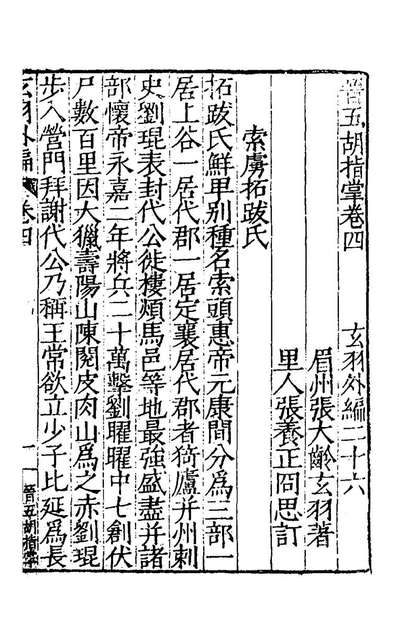 晉五胡指掌卷四　　玄羽外編二十六
眉州張大齡玄羽著
里人張養正冏思訂
索虜拓跋氏
拓跋氏鮮卑别種名索頭惠帝元康間分爲三部一
居上谷一居代郡一居定襄居代郡者猗盧并州刺
史劉琨表封代公徙樓煩馬邑等地最強盛盡并諸
部懷帝永嘉二年將兵二十萬擊劉曜曜中七創伏
尸數百里因大獵壽陽山陳閱皮肉山爲之赤劉琨
步入營門拜謝代公乃稱王常欲立少子比延爲長
玄羽外編　卷四
一
晉五胡指掌